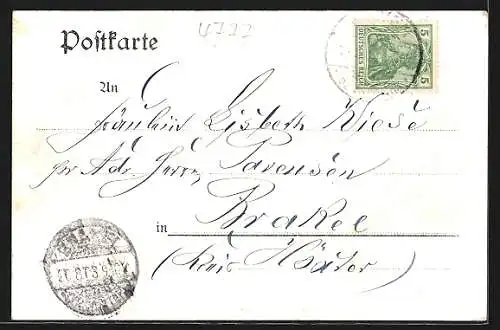 4722
Postkarte
5 DEUTSCHES REICH 5
An
Fräulein Lisbeth Wiese
pr Adr. Herrn Parensen
in Brakel
(Kreis Höxter)